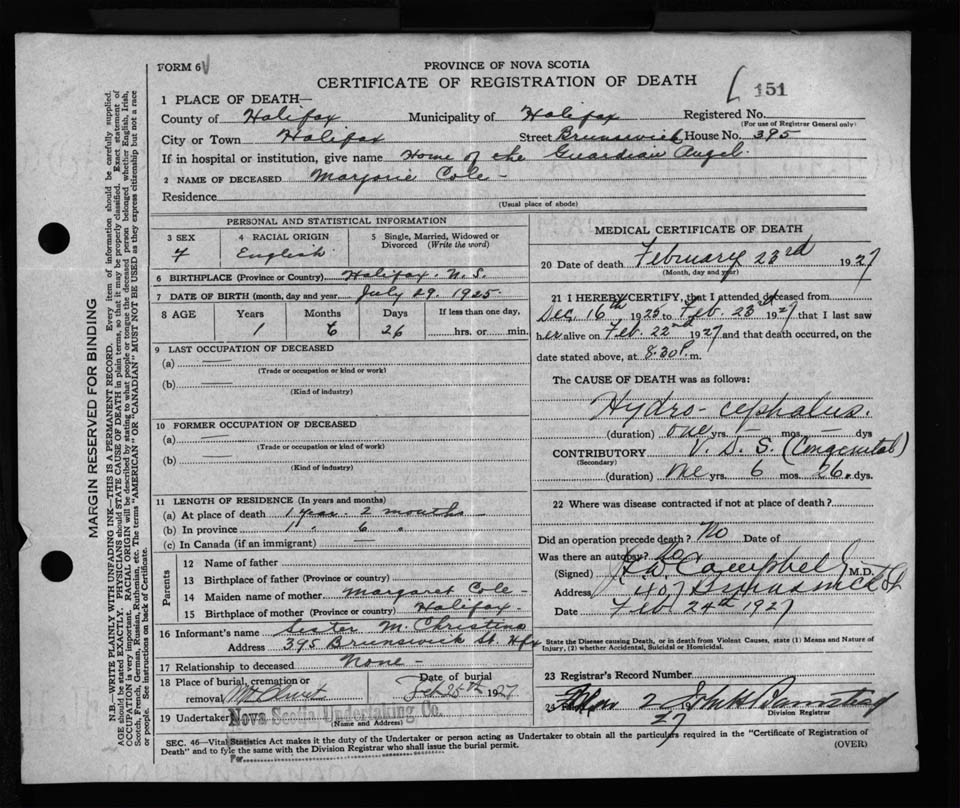 FORM 6
PROVINCE OF NOVA SCOTIA
CERTIFICATE OF REGISTRATION OF DEATH
151
1 PLACE OF DEATH—
County of Halifax Municipality of Halifax Registered No.
(For use of Registrar General only)
City or Town Halifax Street Brunswick House No. 395
If in hospital or institution, give name Home of the Guardian Angel.
2 NAME OF DECEASED Marjorie Cole -
Residence
(Usual place of abode)
PERSONAL AND STATISTICAL INFORMATION
3 SEX
4 RACIAL ORIGIN
5 Single, Married, Widowed or Divorced (Write the word)
F English
6 BIRTHPLACE (Province or Country) Halifax. N.S.
7 DATE OF BIRTH (month, day and year) July 29. 1925.
8 AGE Years Months Days If less than one day,
1 6 26 hrs. or min.
9 LAST OCCUPATION OF DECEASED
(a) —
(Trade or occupation or kind or work)
(b) —
(Kind of industry)
10 FORMER OCCUPATION OF DECEASED
(a) —
(Trade or occupation or kind of work)
(b) —
(Kind of industry)
11 LENGTH OF RESIDENCE (In years and months)
(a) At place of death 1 year 2 months
(b) In province 1 " 6 "
(c) In Canada (if an immigrant) —
Parents
12 Name of father
13 Birthplace of father (Province or country)
14 Maiden name of mother Margaret Cole -
15 Birthplace of mother (Province or country) Halifax -
16 Informant's name Sister M. Christina
Address 395 Brunswick St. Hfx
17 Relationship to deceased None -
18 Place of burial, cremation or removal Mt Olivet Date of burial Feb 25th 1927
19 Undertaker Nova Scotia Undertaking Co.
(Name and Address)
MEDICAL CERTIFICATE OF DEATH
20 Date of death February 23rd 1927
(Month, day and year)
21 I HEREBY CERTIFY, that I attended deceased from
Dec. 16th 1925 to Feb. 23rd 1927 that I last saw
her alive on Feb. 22nd 1927 and that death occurred, on the
date stated above, at 8.30 P.m.
The CAUSE OF DEATH was as follows:
Hydro-cephalus.
(duration) one yrs. — mos. — dys
CONTRIBUTORY V. D. S. (Congenital)
(Secondary)
(duration) One yrs. 6 mos. 26. dys
22 Where was disease contracted if not at place of death?
Did an operation precede death? No Date of
Was there an autopsy? No
(Signed) Campbell M.D.
Address 407 Brunswick St
Date Feb. 24th 1927
State the Disease causing Death, or in death from Violent Causes, state (1) Means and Nature of Injury, (2) whether Accidental, Suicidal or Homicidal.
23 Registrar's Record Number
27
Division Registrar
SEC. 46—Vital Statistics Act makes it the duty of the Undertaker or person acting as Undertaker to obtain all the particulars required in the "Certificate of Registration of
Death" and to file the same with the Division Registrar who shall issue the burial permit. (OVER)
Per
MARGIN RESERVED FOR BINDING
N.B.—WRITE PLAINLY WITH UNFADING INK—THIS IS A PERMANENT RECORD. Every item of information should be carefully supplied.
AGE should be stated EXACTLY. PHYSICIANS should STATE CAUSE OF DEATH in plain terms, so that it may be properly classified. Exact statement of
OCCUPATION is very important. RACIAL ORIGIN will be described by stating to what people or tongue the deceased person belonged whether English, Irish,
Scotch, French, German, Russian, Ruthenian, etc. The terms "AMERICAN" OR "CANADIAN" MUST NOT BE USED as they express citizenship but not a race
or people. See instructions on back of Certificate.